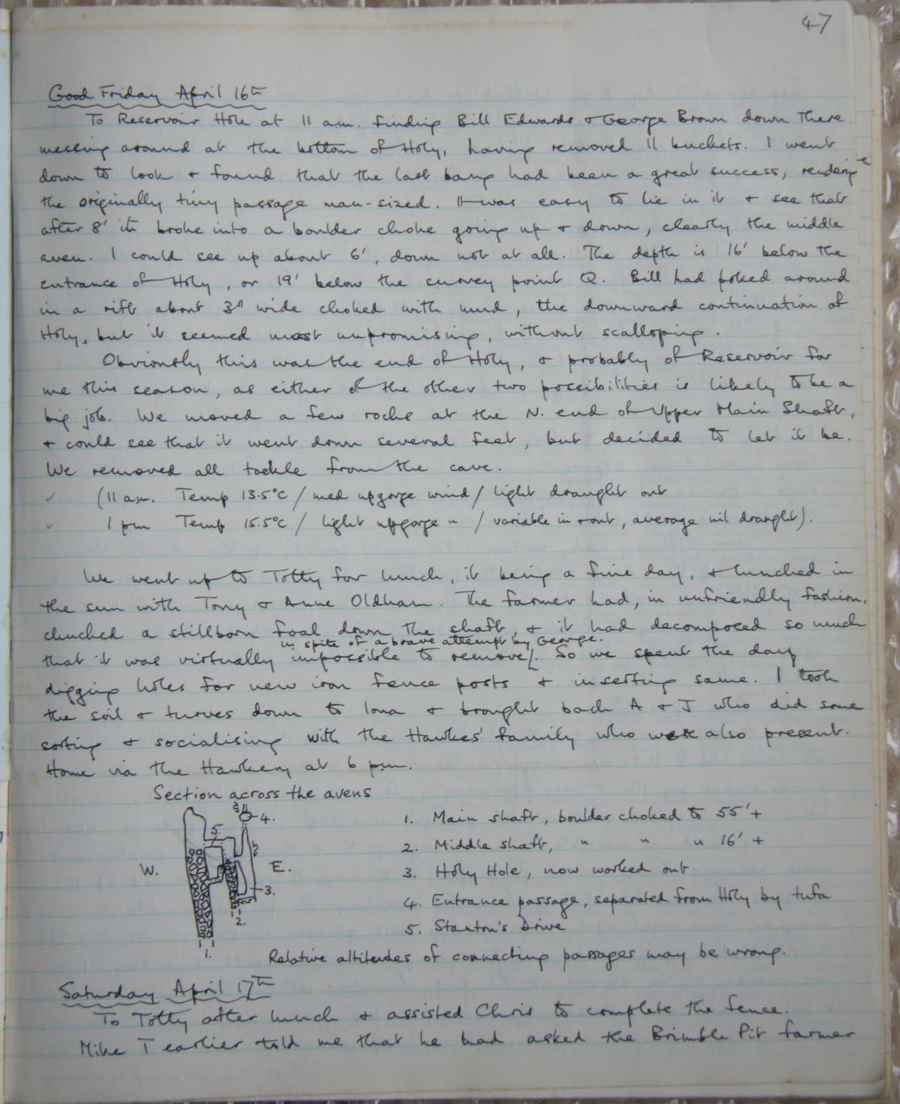 47
Good Friday April 16th
To Reservoir Hole at 11 a.m. finding Bill Edwards & George Brown down there
messing around at the bottom of Holy, having removed 11 buckets. I went
down to look & found that the last bang had been a great success, rendering
the originally tiny passage man-sized. It was easy to lie in it & see that
after 8' it broke into a boulder choke going up & down, clearly the middle
aven. I could see up about 6', down not at all. The depth is 16' below the
entrance of Holy, or 19' below the survey point Q. Bill had poked around
in a rift about 3" wide choked with mud, the downward continuation of
Holy, but it seemed most unpromising, without scalloping.
Obviously this was the end of Holy, & probably of Reservoir for
me this season, as either of the other two possibilities is likely to be a
big job. We moved a few rocks at the N. end of Upper Main Shaft,
& could see that it went down several feet, but decided to let it be.
We removed all tackle from the cave.
✓ (11 a.m. Temp 13.5°C / med upgorge wind / light draught out
✓ 1 pm Temp 15.5°C / light upgorge " / variable in & out, average nil draught).
We went up to Totty for lunch, it being a fine day, & lunched in
the sun with Tony & Anne Oldham. The farmer had, in unfriendly fashion,
chucked a stillborn foal down the shaft & it had decomposed so much
in spite of a brave attempt by George.
that it was virtually impossible to remove. So we spent the day
digging holes for new iron fence posts & inserting same. I took
the soil & turves down to Iona & brought back A & J who did some
sorting & socialising with the Hawkes' family who were also present.
Home via the Hawkery at 6 p.m.
Section across the avens
W.
E.
5.
4.
3.
2.
1.
1. Main shaft, boulder choked to 55' +
2. Middle shaft, " " " 16' +
3. Holy Hole, now worked out
4. Entrance passage, separated from Holy by tufa
5. Stanton's Drive
Relative altitudes of connecting passages may be wrong.
Saturday April 17th
To Totty after lunch & assisted Chris to complete the fence.
Mike T earlier told me that he had asked the Brimble Pit farmer